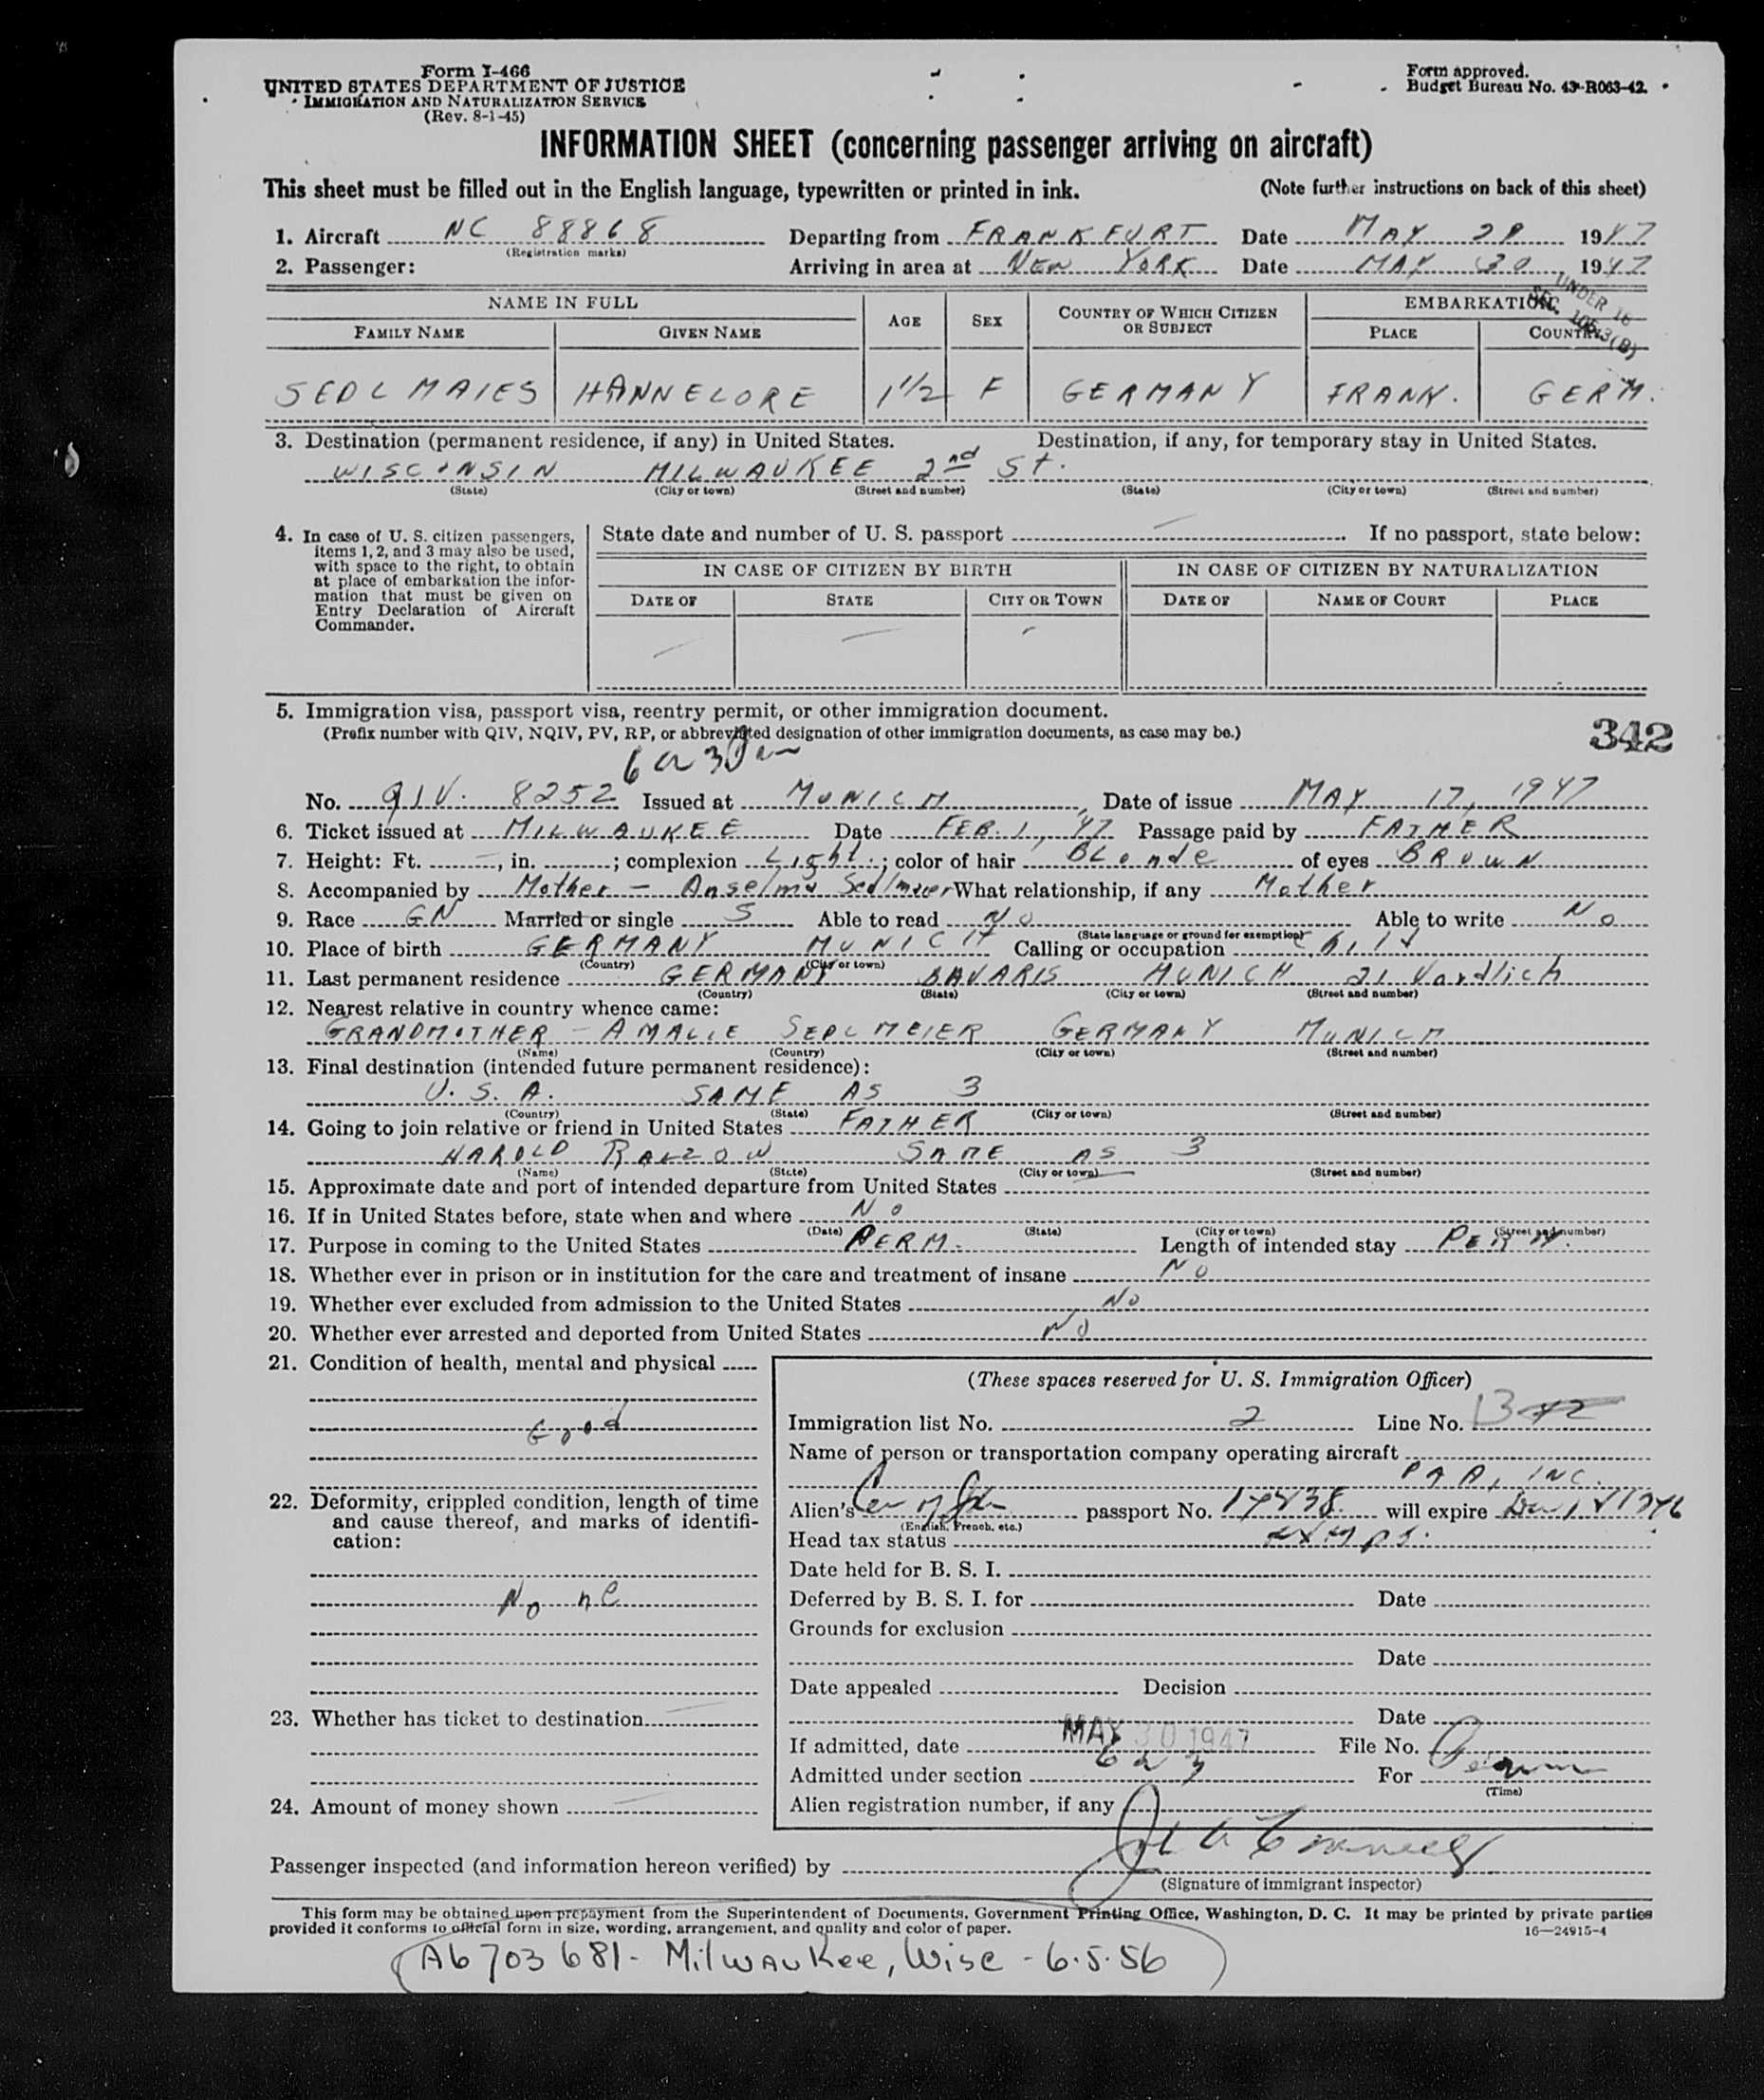 Form I-466
UNITED STATES DEPARTMENT OF JUSTICE
IMMIGRATION AND NATURALIZATION SERVICE
(Rev. 8-1-45)
Form approved.
Budget Bureau No. 43-R063-42.
INFORMATION SHEET (concerning passenger arriving on aircraft)
This sheet must be filled out in the English language, typewritten or printed in ink. (Note further instructions on back of this sheet)
1. Aircraft NC 88868 Departing from FRANKFURT Date MAY 28 1947
(Registration marks)
2. Passenger: Arriving in area at NEW YORK Date MAY 30 1947
UNDER 16
SEC. 105.3(B)
NAME IN FULL AGE SEX COUNTRY OF WHICH CITIZEN OR SUBJECT EMBARKATION
FAMILY NAME GIVEN NAME PLACE COUNTRY
SEDLMAIES HANNELORE 1 1/2 F GERMANY FRANK. GERM.
3. Destination (permanent residence, if any) in United States. Destination, if any, for temporary stay in United States.
WISCONSIN MILWAUKEE 2nd St.
(State) (City or town) (Street and number) (State) (City or town) (Street and number)
4. In case of U. S. citizen passengers, items 1, 2, and 3 may also be used, with space to the right, to obtain at place of embarkation the information that must be given on Entry Declaration of Aircraft Commander.
State date and number of U. S. passport — If no passport, state below:
IN CASE OF CITIZEN BY BIRTH IN CASE OF CITIZEN BY NATURALIZATION
DATE OF STATE CITY OR TOWN DATE OF NAME OF COURT PLACE
5. Immigration visa, passport visa, reentry permit, or other immigration document.
(Prefix number with QIV, NQIV, PV, RP, or abbreviated designation of other immigration documents, as case may be.)
342
6 a 3
No. QIV. 8252 Issued at MUNICH, Date of issue MAY 17, 1947
6. Ticket issued at MILWAUKEE Date FEB. 1, 47 Passage paid by FATHER
7. Height: Ft. —, in. ; complexion Light.; color of hair BLonde of eyes BROWN
8. Accompanied by Mother - Anselma Sedlmaier What relationship, if any Mother
9. Race GN Married or single S Able to read NO Able to write NO
(State language or ground for exemption)
10. Place of birth GERMANY MUNICH Calling or occupation child
(Country) (City or town)
11. Last permanent residence GERMANY BAVARIS MUNICH 21
(Country) (State) (City or town) (Street and number)
12. Nearest relative in country whence came:
GRANDMOTHER - AMALIE SEDLMEIER GERMANY MUNICH
(Name) (Country) (City or town) (Street and number)
13. Final destination (intended future permanent residence):
U. S. A. SAME AS 3
(Country) (State) (City or town) (Street and number)
14. Going to join relative or friend in United States FATHER
HAROLD SAME AS 3
(Name) (State) (City or town) (Street and number)
15. Approximate date and port of intended departure from United States
16. If in United States before, state when and where NO
(Date) (State) (City or town) (Street and number)
17. Purpose in coming to the United States PERM. Length of intended stay PERM.
18. Whether ever in prison or in institution for the care and treatment of insane NO
19. Whether ever excluded from admission to the United States NO
20. Whether ever arrested and deported from United States NO
21. Condition of health, mental and physical
Good
22. Deformity, crippled condition, length of time and cause thereof, and marks of identification:
None
23. Whether has ticket to destination
24. Amount of money shown
(These spaces reserved for U. S. Immigration Officer)
Immigration list No. 2 Line No. 13
Name of person or transportation company operating aircraft
PAA, INC.
Alien's passport No. will expire
(English, French, etc.)
Head tax status
Date held for B. S. I.
Deferred by B. S. I. for Date
Grounds for exclusion
Date
Date appealed Decision
Date
If admitted, date MAY 30 1947 File No.
Admitted under section 6 a 3 For Perm
(Time)
Alien registration number, if any
Passenger inspected (and information hereon verified) by
(Signature of immigrant inspector)
This form may be obtained upon prepayment from the Superintendent of Documents, Government Printing Office, Washington, D. C. It may be printed by private parties
provided it conforms to official form in size, wording, arrangement, and quality and color of paper. 16—24915-4
A6 703 681 - Milwaukee, Wisc - 6.5.56